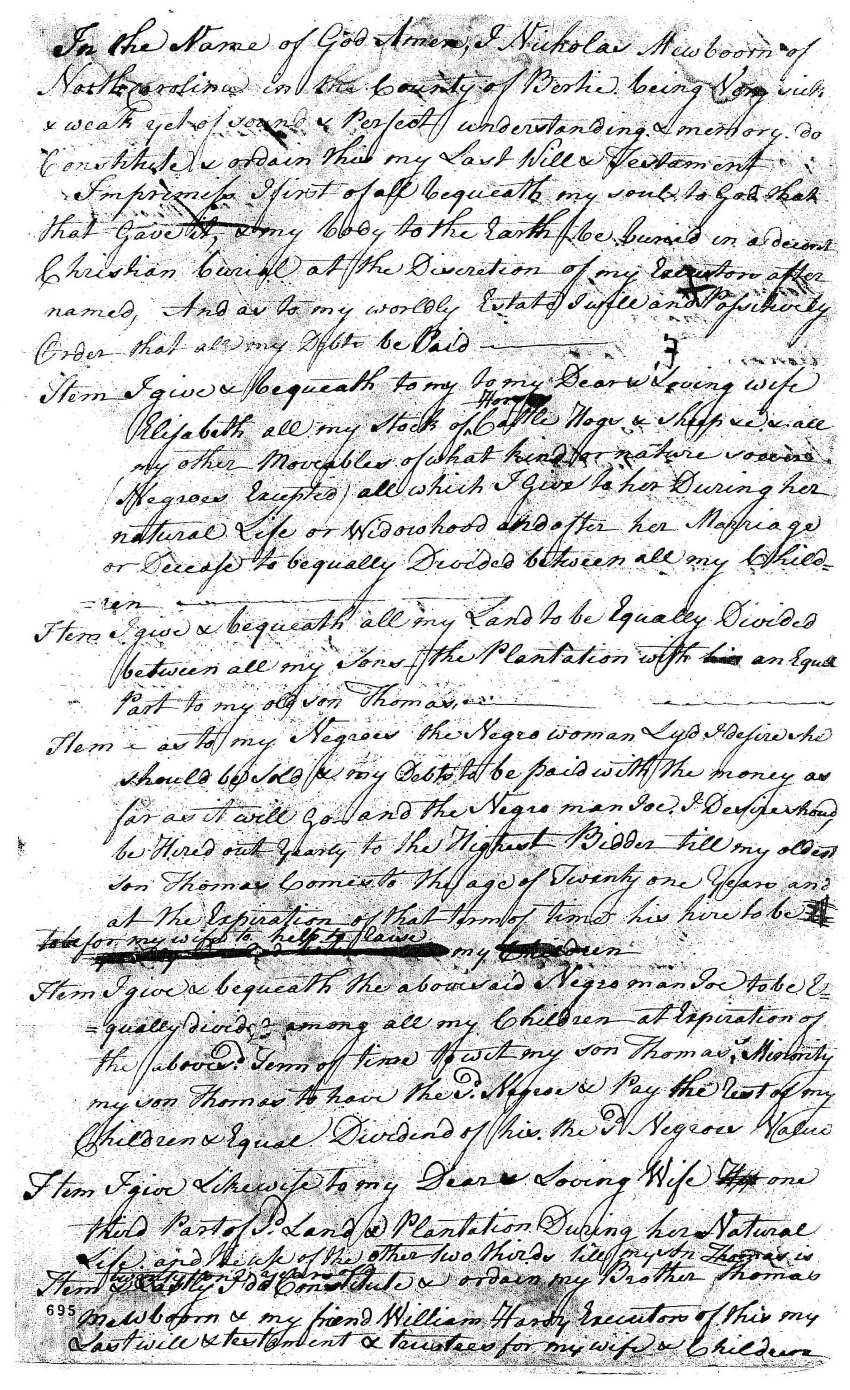 In the Name of God Amen, I Nickolas Mewboorn of
North Carolina in the County of Bertie being Very sick
& weak yet of sound & Perfect understanding & memory do
Constitute & ordain this my Last Will & Testament
Imprimiss I first of all bequeath my soul to God that
that Gave it, & my body to the Earth be buried in a decent
Christian burial at the Discretion of my Executors after
named, And as to my worldly Estate I will and Possitively
Order that all my Debts be Paid
Item I give & bequeath to my to my Dear & Loving wife
Horses
Elisabeth all my Stock of Cattle Hogs & sheep &c & all
my other Moveables of what kind or nature soever
(Negroes Excepted) all which I Give to her During her
natural Life or Widowhood and after her Marriage
or Decease to bequally Divided between all my Child=
=ren
Item I give & bequeath all my Land to be Equally Divided
between all my sons the Plantation with an Equal
Part to my old son Thomas.
Item - as to my Negroes the Negro woman Lyd I desire she
should be Sold & my Debts to be paid with the money as
far as it will go and the Negro man Joe. I Desire shoud
be Hired out Yearly to the Highest Bidder till my oldest
son Thomas Comes to the age of Twenty one Years and
at the Expiration of that term of time his hire to be
to be for my wife to help to Raise
my Children
Item I give & bequeath the abovesaid Negro man Joe to be E=
=qually divided among all my Children at Expiration of
the aboves.d Term of time to wit my son Thomas,s Minority
my son Thomas to have the s.d Negroe & Pay the rest of my
Children & Equal Dividend of his. the s.d Negroes Value
Item I give Likewise to my Dear & Loving Wife one
third Part of s.d Land & Plantation During her Natural
Life and the use of the other two thirds till my son Thomas is
twenty one years old
Item & Lastly I do Constitute & ordain my Brother Thomas
695
Mewboorn & my friend William Hardy Executors of this my
Last will & testament & trustees for my wife & Children